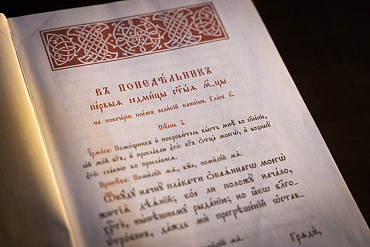 Въ понедѣльникъ
пе́рвыѧ седми́цы ст҃ы́ѧ м҃-цы
на повече́рїи пое́мъ вели́кїй кано́нъ. Гла́съ ѕ҃.
Пѣ́снь а҃.
І҆рмо́съ: Помо́щникъ и҆ покрови́тель бы́сть мнѣ̀ во спⷭ҇нїе,
се́й мо́й бг҃ъ, и҆ просла́влю є҆го̀: бг҃ъ ѻ҆тца̀ моегѡ̀, и҆ вознесꙋ̀
є҆го̀: сла́внѡ бо просла́висѧ.
Припѣ́въ: Поми́лꙋй мѧ̀, бж҃е, поми́лꙋй мѧ̀.
Ѿкꙋ́дꙋ начнꙋ̀ пла́кати ѻ҆каѧ́ннагѡ моегѡ̀
житїѧ̀ дѣѧ́нїй; ко́е ли положꙋ̀ нача́ло,
хрⷭ҇тѐ, ны́нѣшнемꙋ рыда́нїю; но ꙗ҆́кѡ бл҃го-
ꙋтро́бенъ, да́ждь мѝ прегрѣше́нїй ѡ҆ставле́нїе.